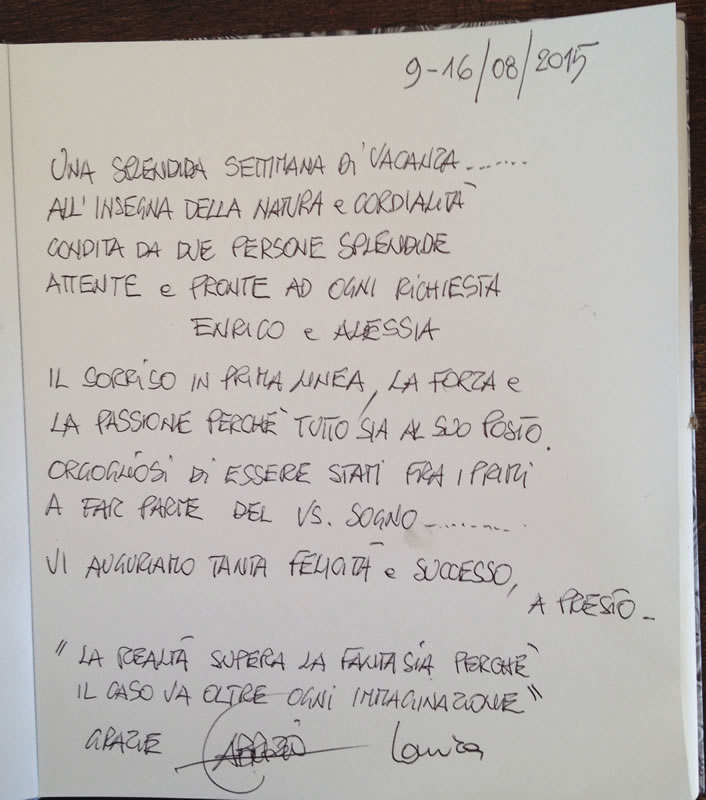 9-16/08/2015
UNA SPLENDIDA SETTIMANA Di VACANZA.......
ALL'INSEGNA DELLA NATURA e CORDIALITÀ
CONDITA DA DUE PERSONE SPLENDIDE
ATTENTE e PRONTE AD OGNI RICHIESTA
ENRICO e ALESSIA
IL SORRISO IN PRIMA LINEA, LA FORZA e
LA PASSIONE PERCHÈ TUTTO SIA AL SUO POSTO.
ORGOGLIOSI Di ESSERE STATI FRA I PRIMI
A FAR PARTE DEL VS. SOGNO..........
VI AUGURIAMO TANTA FELICITÀ e SUCCESSO,
A PRESTO_
"LA REALTÀ SUPERA LA FANTASIA PERCHÈ
IL CASO VA OLTRE OGNI IMMAGINAZIONE"
GRAZIE